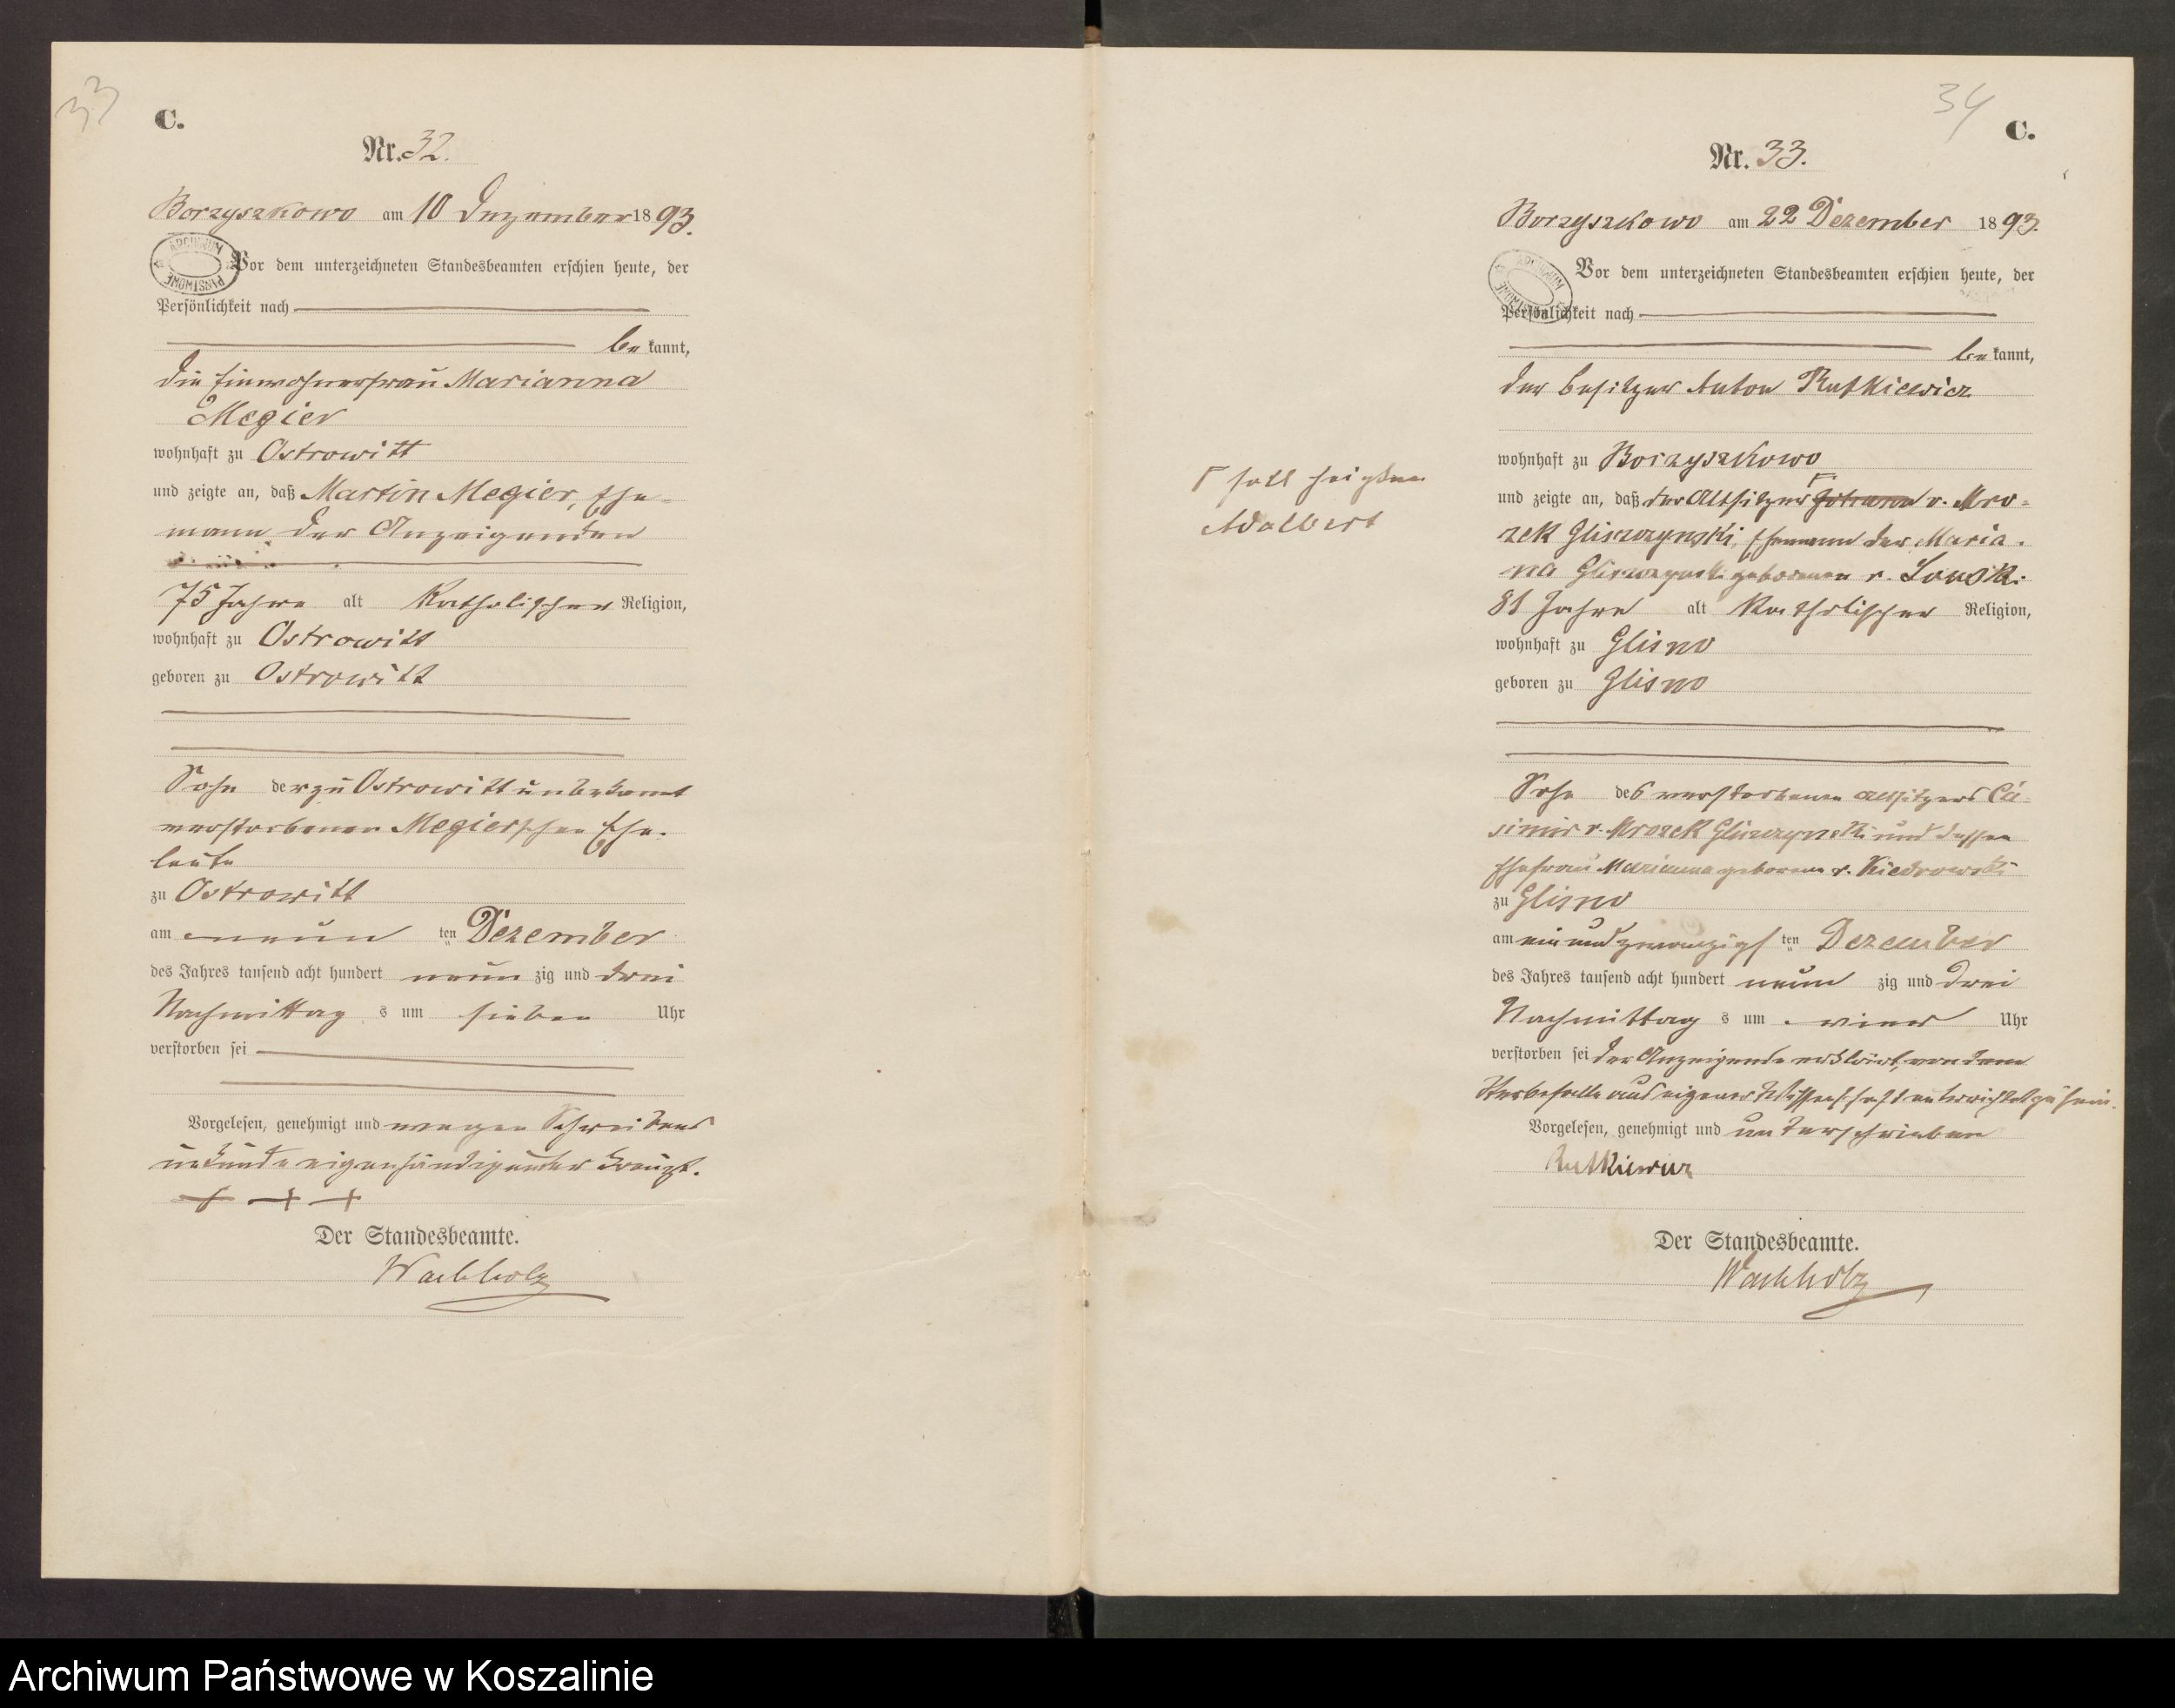 33
C.
Nr. 32.
Borzyszkowo am 10 Dezember 1893.
ARCHIWUM PAŃSTWOWE
Vor dem unterzeichneten Standesbeamten erschien heute, der
Persönlichkeit nach
be kannt,
die Einwohnerfrau Marianna
Megier
wohnhaft zu Ostrowitt
und zeigte an, daß Martin Megier, Ehe-
mann der Anzeigenden
75 Jahre alt Katholischer Religion,
wohnhaft zu Ostrowitt
geboren zu Ostrowitt
Sohn der zu Ostrowitt unbekannt
verstorbenen Megierschen Ehe-
leute
zu Ostrowitt
am neun ten Dezember
des Jahres tausend acht hundert neun zig und drei
Nachmittag s um sieben Uhr
verstorben sei
Vorgelesen, genehmigt und wegen Schreibens
unkunde eigenhändig unter kreuzt.
+ + +
Der Standesbeamte.
Wachholz
34
C.
Nr. 33.
Borzyszkowo am 22 Dezember 1893.
ARCHIWUM PAŃSTWOWE
Vor dem unterzeichneten Standesbeamten erschien heute, der
Persönlichkeit nach
be kannt,
der Besitzer Anton Rutkiewicz
wohnhaft zu Borzyszkowo
und zeigte an, daß der Altsitzer Johann v. Mro-
zek Gliszczynski, Ehemann der Maria-
na Gliszczynski geborenen v. Lonski
81 Jahre alt Katholischer Religion,
wohnhaft zu Glisno
geboren zu Glisno
Sohn des verstorbenen Altsitzers Ca-
simir v. Mrozek Gliszczynski und dessen
Ehefrau Marianna geborene v. Kiedrowski
zu Glisno
am ein und zwanzigs ten Dezember
des Jahres tausend acht hundert neun zig und drei
Nachmittag s um vier Uhr
verstorben sei der Anzeigende erklärt, von dem
Sterbefalle aus eigener Wissenschaft unterrichtet zu sein.
Vorgelesen, genehmigt und unterschrieben
Rutkiewicz
Der Standesbeamte.
Wachholz
Γ soll heißen
Adalbert
Archiwum Państwowe w Koszalinie